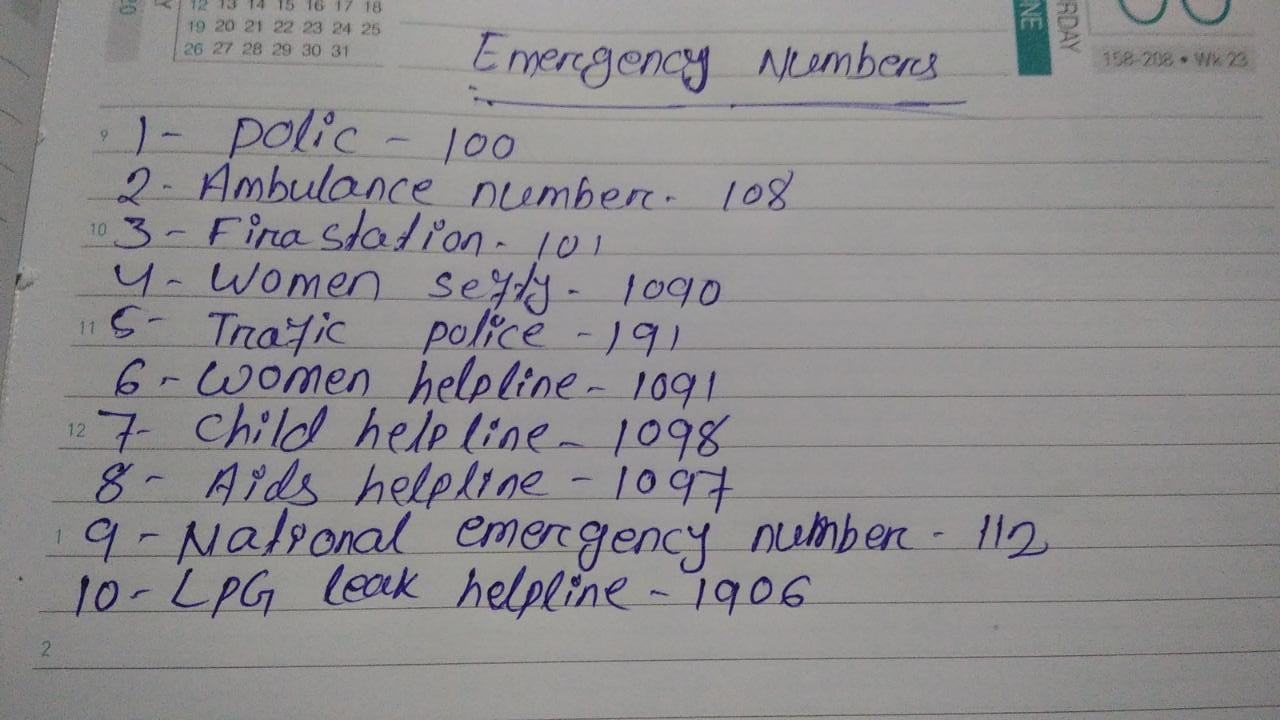 12 13 14 15 16 17 18
19 20 21 22 23 24 25
26 27 28 29 30 31
NE
RDAY
158-208 • Wk 23
Emergency Numbers
9 1 - Polic - 100
2 - Ambulance number. 108
10 3 - Fira station - 101
4 - Women - 1090
11 5 - Trafic police - 191
6 - Women helpline - 1091
12 7 - Child help line - 1098
8 - Aids helpline - 1097
1 9 - National emergency number - 112
10 - LPG leak helpline - 1906
2